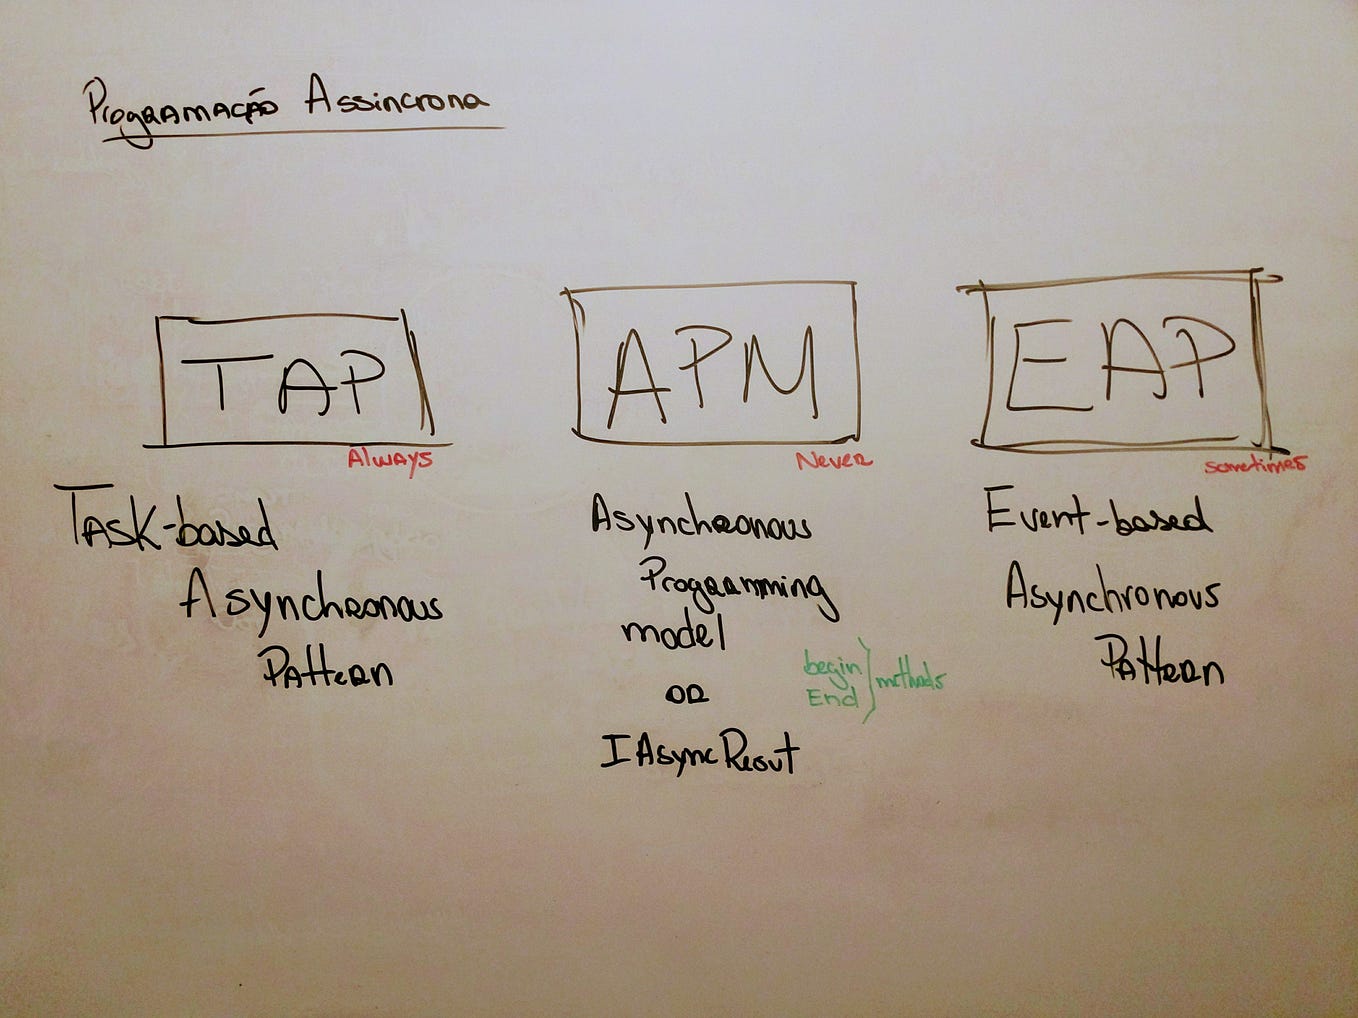 Programação Assincrona
TAP
Always
Task-based
Asynchronous
Pattern
APM
Never
Asynchronous
Programming
model
or
IAsyncResut
begin
End
methods
EAP
sometimes
Event-based
Asynchronous
Pattern